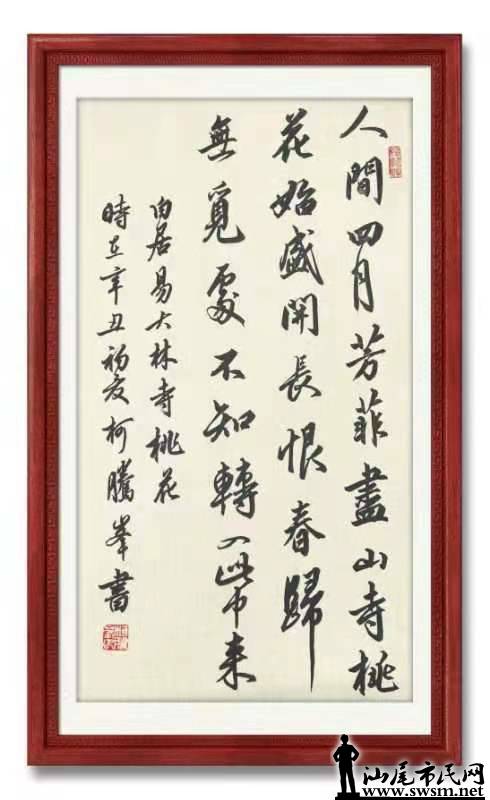 人間四月芳菲盡山寺桃
花始盛開長恨春歸
無覓處不知轉入此中来
白居易大林寺桃花
時在辛丑初夏柯騰峯書
汕尾市民网
www.swsm.net